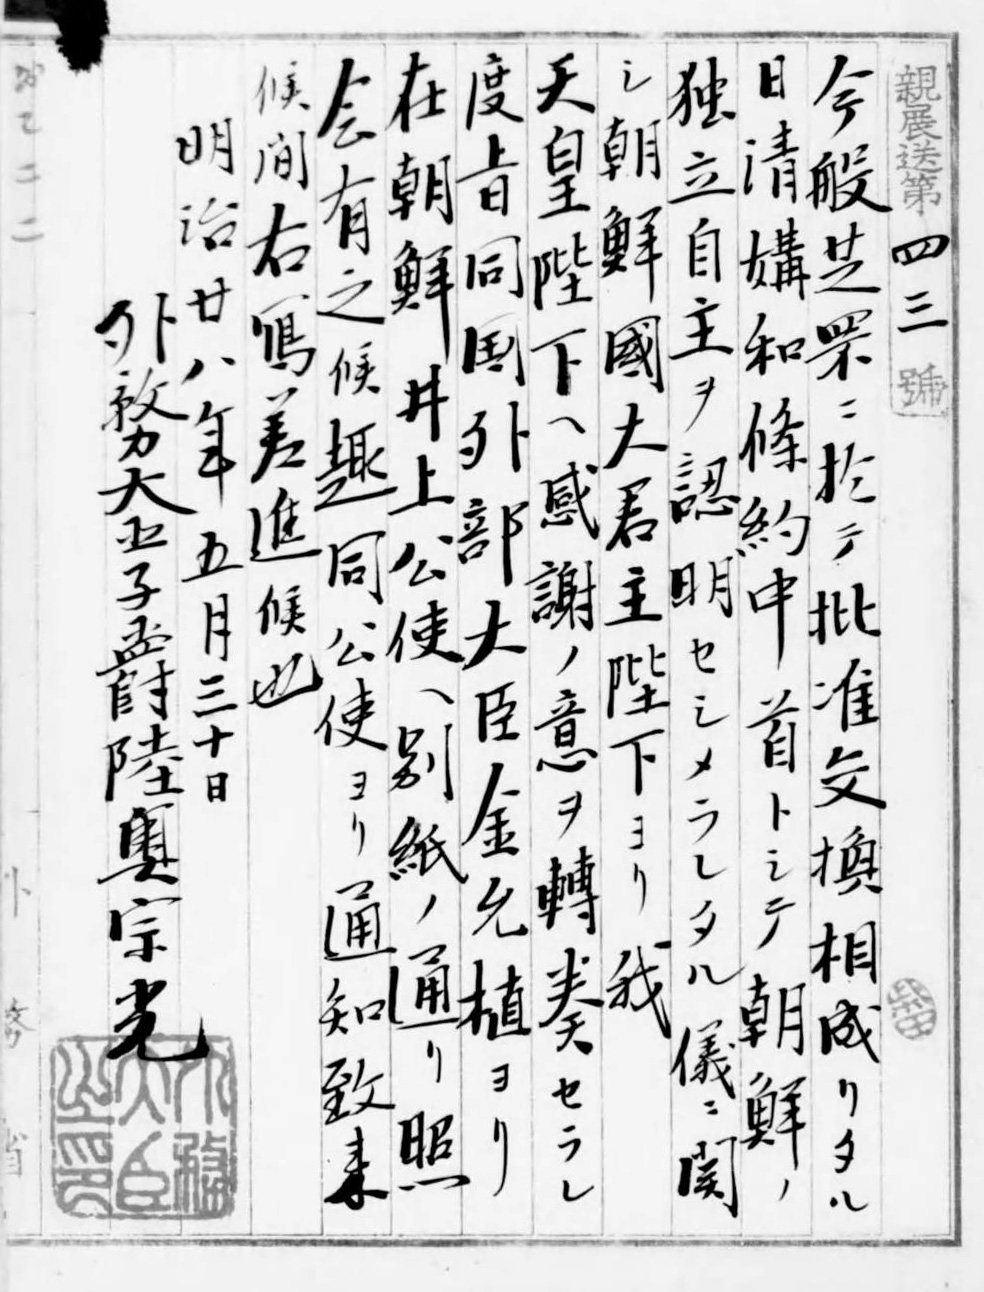 親展送第四三號
今般芝罘ニ於テ批准交換相成リタル
日清媾和條約中首トシテ朝鮮ノ
独立自主ヲ認明セシメラレタル儀ニ関
シ朝鮮國大君主陛下ヨリ我
天皇陛下ヘ感謝ノ意ヲ轉奏セラレ
度旨同国外部大臣金允植ヨリ
在朝鮮井上公使ヘ別紙ノ通リ照
会有之候趣同公使ヨリ通知致来
候間右寫差進候也
明治廿八年五月三十日
外務大臣子爵陸奥宗光
外務大臣之印